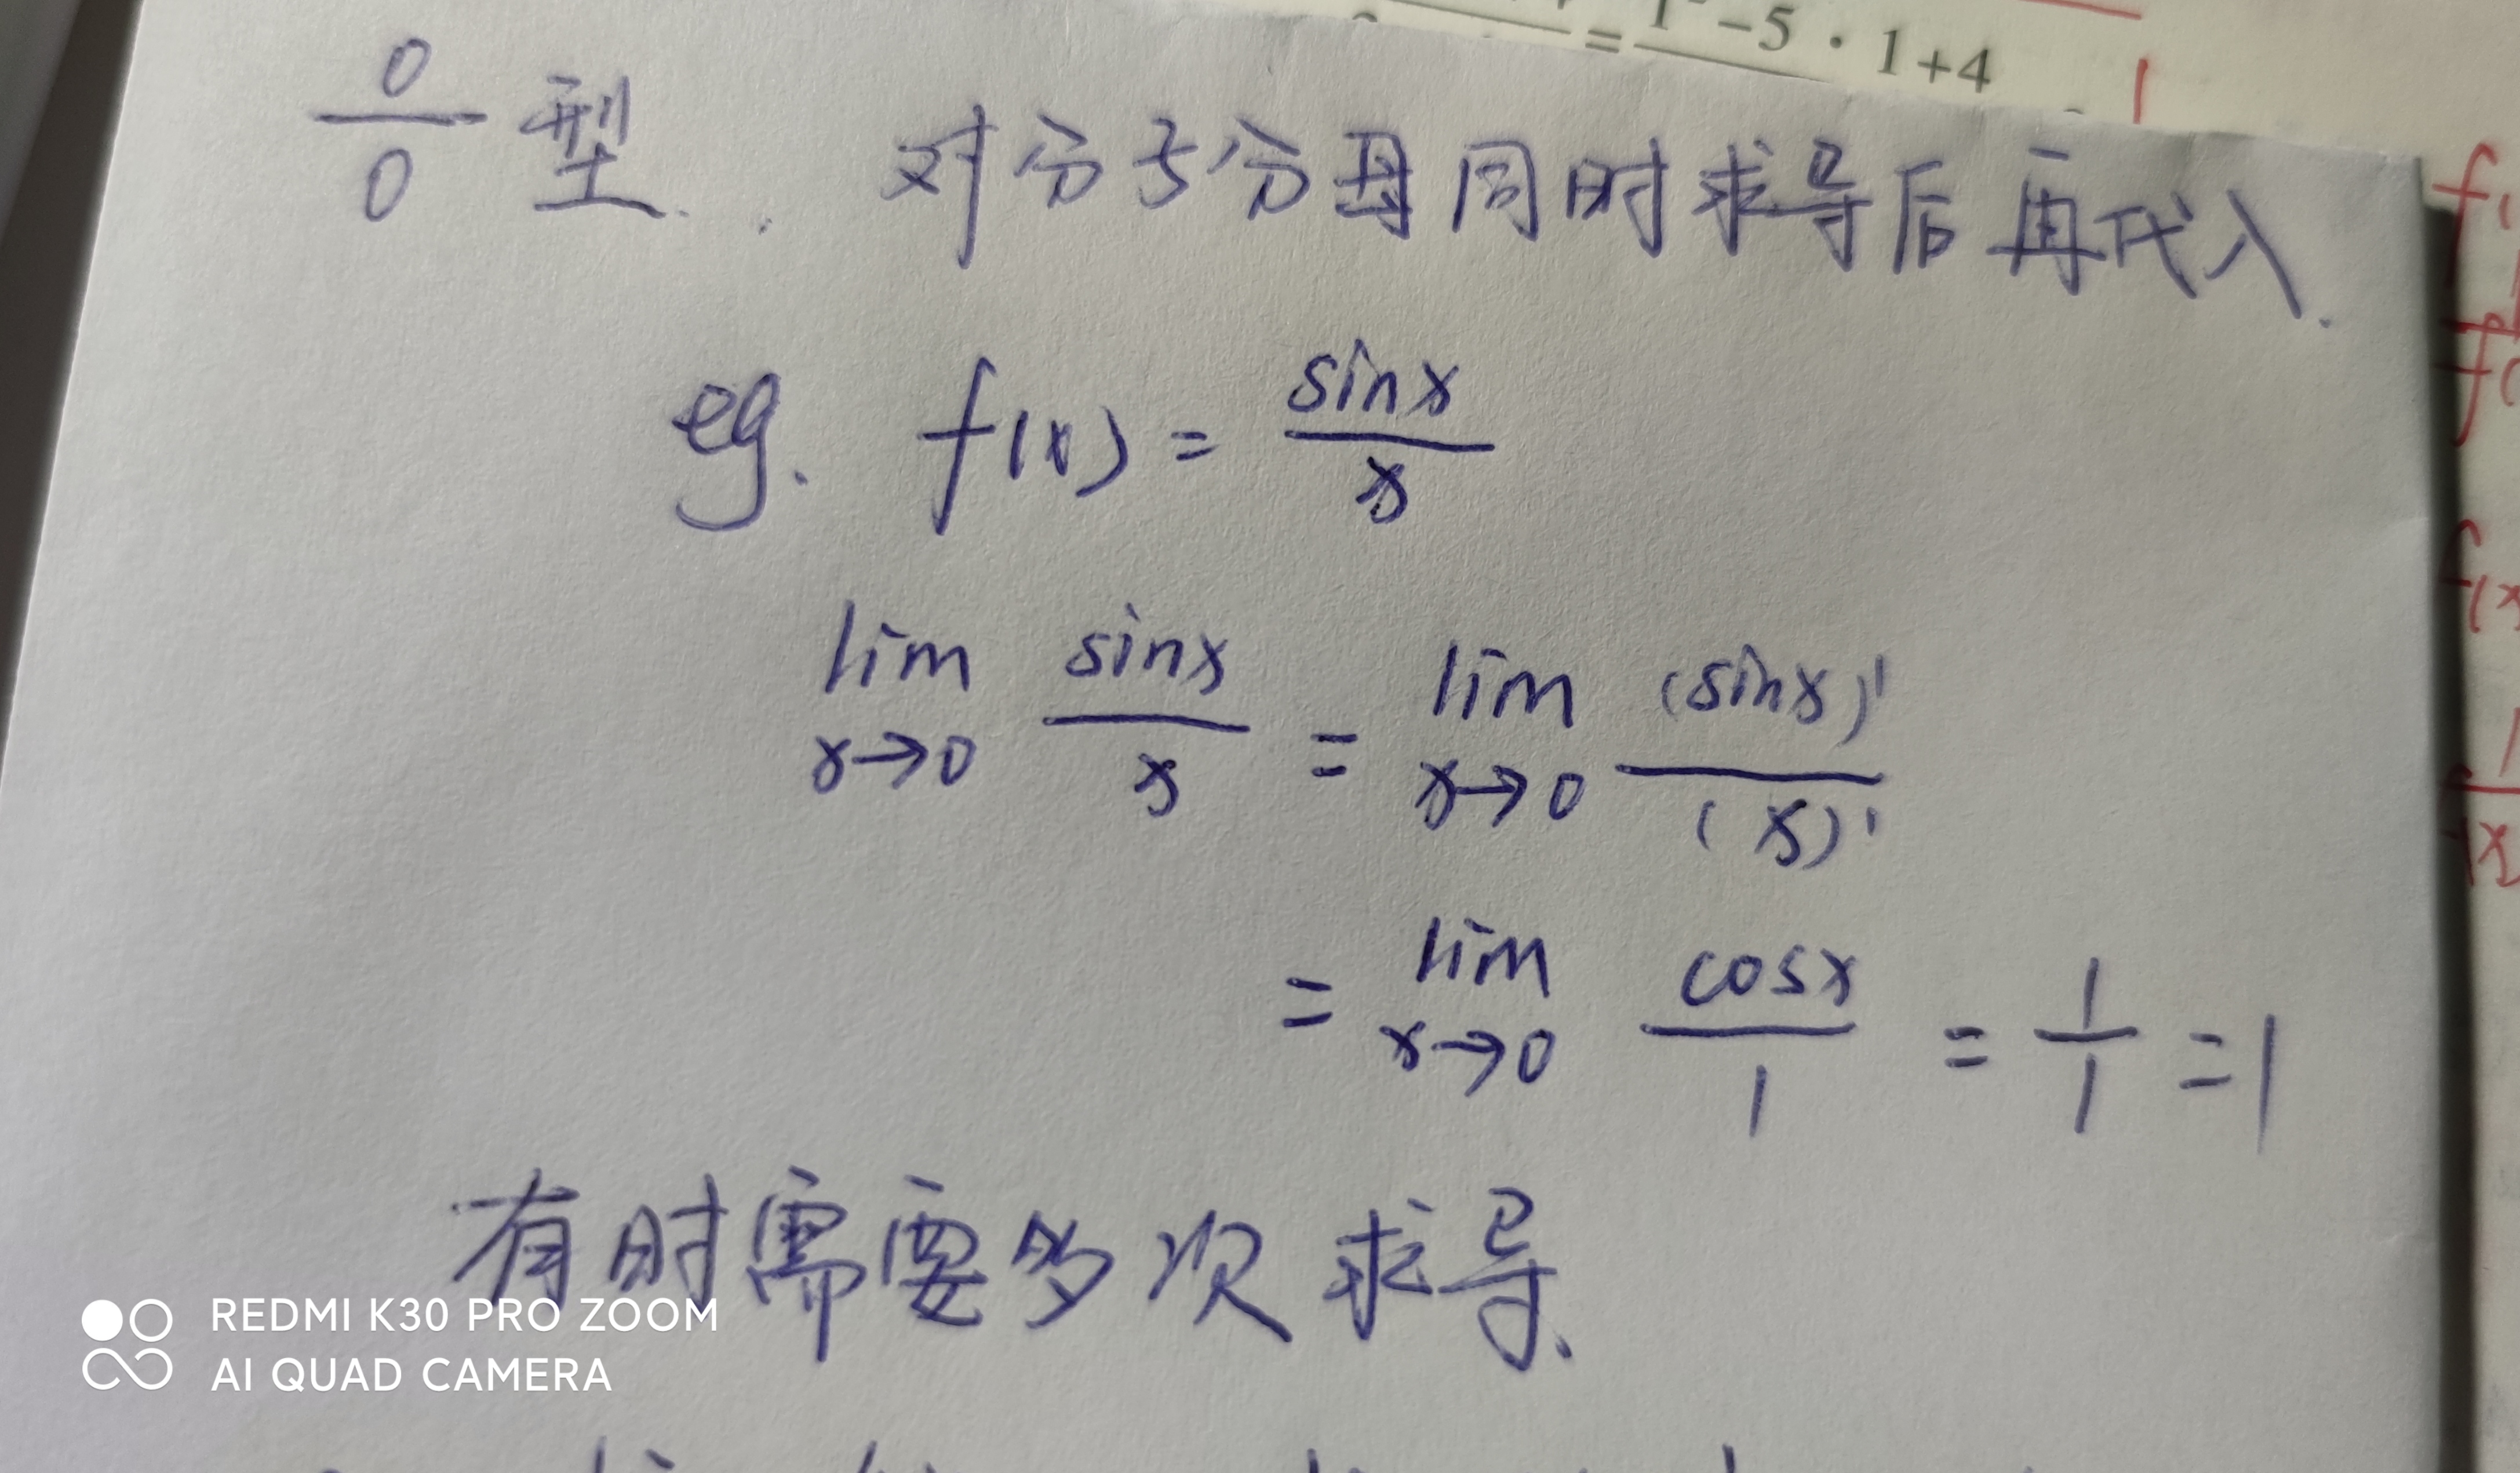 = 1²-5·1+4
0/0 型. 对分子分母同时求导后再代入.
eg. f(x) = sinx/x
lim x→0 sinx/x = lim x→0 (sinx)'/(x)'
= lim x→0 cosx/1 = 1/1 = 1
有时需要多次求导.
REDMI K30 PRO ZOOM
AI QUAD CAMERA